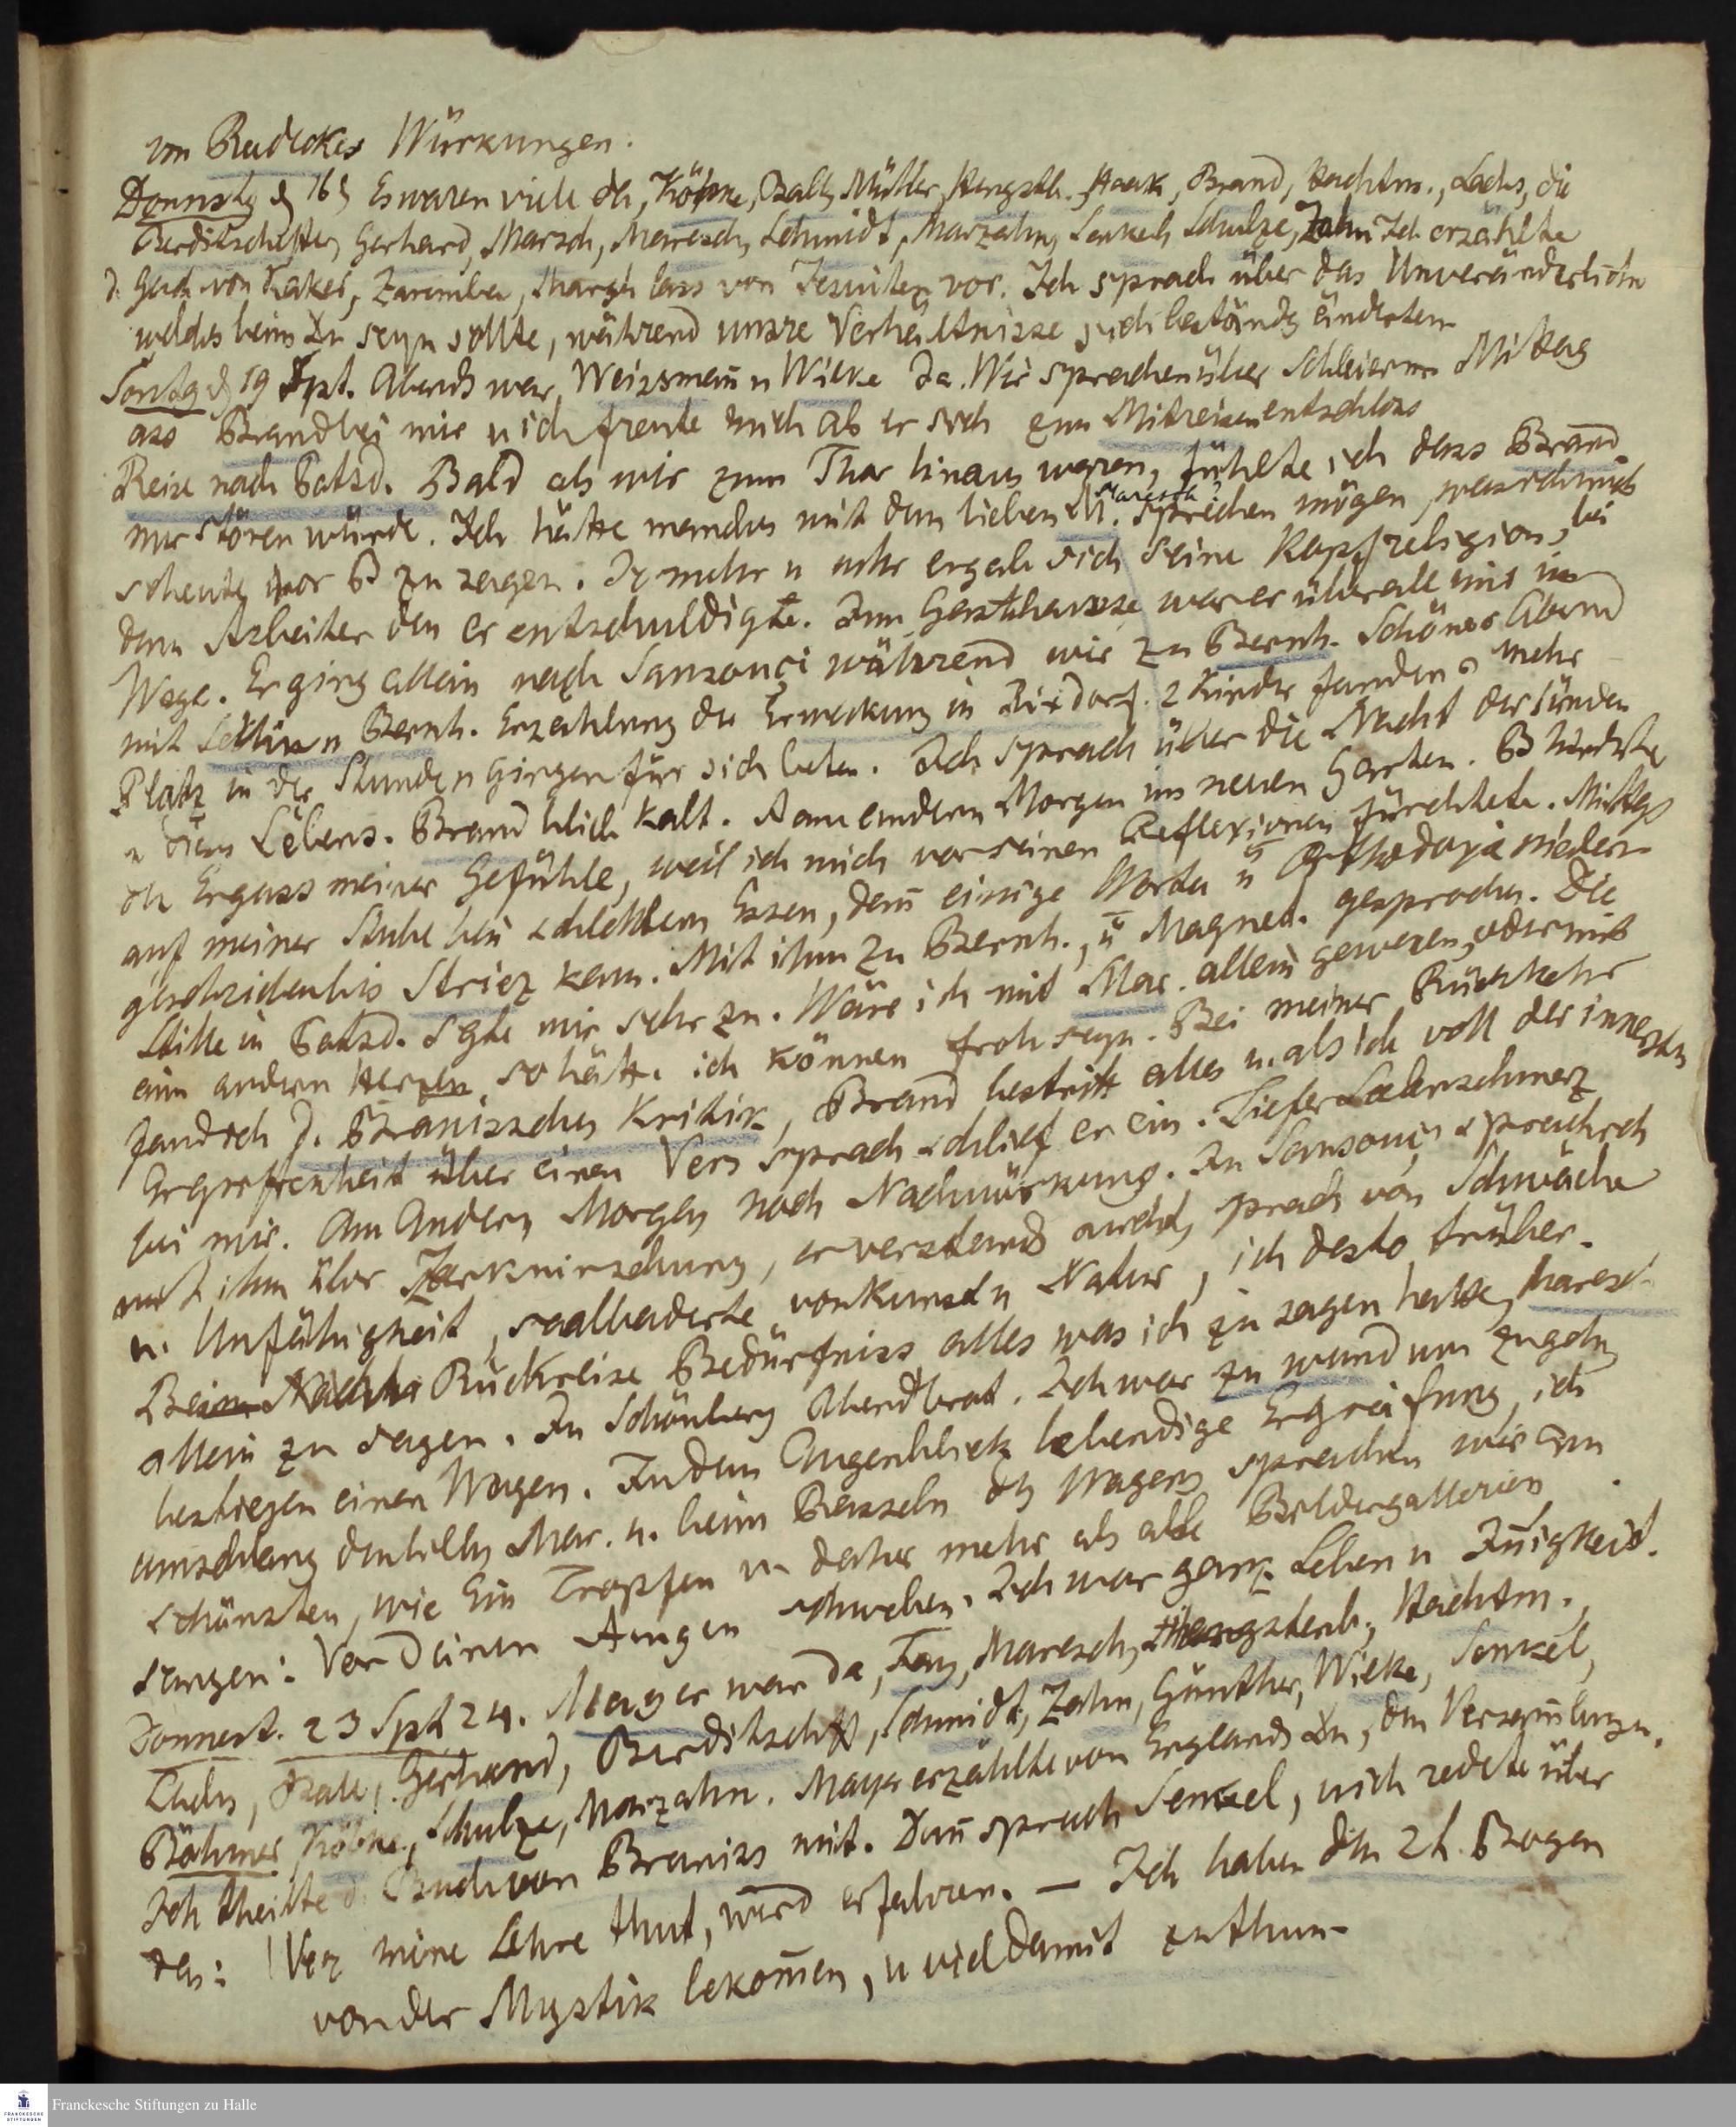 von Radeckes Würkungen.
Donnstg d 16t Es waren viele da, Köhne, Balls, Müller, Hengstb., Haak, Brand, Hachtm., Lachs, die
Berditschefter, Gerhard, Marsch, Maresch, Schmidt, Marzahn, Senkel, Schulze, Zahn Ich erzählte
d. Gesch von Zaremba, las von Jesuiten vor. Ich sprach über das Unveränderliche
welches beim seyn sollte, während unsre Verhältnisse sich beständig änderten
Sontag d 19 Spt. Abends war Weissman u Wilke da. Wir sprachen über Schleierm Mittag
ass Brand bei mir u ich freute mich als er sich zum Mitreisen entschloss
Reise nach Potsd. Bald als wir zum Thor hinaus waren, fühlte ich dass Brand
nur stören würde. Ich hätte manches mit dem lieben M. Maresch? sprechen mögen, was ich mich
scheute vor B zu sagen. Je mehr u mehr ergab sich seine Kopfreligion, bei
dem Arbeiter den er entschuldigte. Im Gasthause war er überall uns im
Wege. Er ging allein nach Sansouçi während wir zu Bernh. Schöner Abend
mit u Bernh. Erzählung der Erweckung in Rixdorf. 2 Kinder fanden mehr
Platz in der Stunde u gingen für sich beten. Ich sprach über die Macht der Sünden
u dieses Lebens. Brand blieb kalt. Am andern Morgen im neuen Garten. B hinderte
den Erguss meiner Gefühle, weil ich mich vor seinen Reflexionen fürchtete. Mittags
auf meiner Stube bei schlechtem Essen, dann einige Worte u Orthodoxie nieder
geschrieben bis Striez kam. Mit ihm zu Bernh., u Magnet. gesprochen. Die
Stille in Potsd. sagte mir sehr zu. Wäre ich mit Mar. allein gewesen, oder mit
einem andern Herzen so hätte ich können froh seyn. Bei meiner Rückkehr
fand ich d. Branissches Kritik, Brand bestritt alles u. als ich voll der innersten
Ergriffenheit über einen Vers sprach schlief er ein. Tiefer Seelenschmerz
bei mir. Am Andern Morgen noch Nachwürkung. In Sansouçi sprach ich
mit ihm über Zerknirschung, er verstand nicht, sprach von Schwäche
u. Unfähigkeit, saalbaderte von Kunst u Natur, ich desto trüber.
Bei Rückreise Bedürfniss alles was ich zu sagen hatte, Maresch
allein zu sagen. In Schönberg Abendbrot. Ich war zu wund um zu gehn
bestiegen einen Wagen. In dem Augenblick lebendige Ergreifung, ich
umschlang den lieben Mar. u. beim Rasseln des Wagens sprachen wir am
schönsten, wie Ein Tropfen mehr als alle Bildergallerien
sangen: Vor Deinen Augen schweben. Ich war ganz Leben u Iñigkeit.
Donnerst. 23 Spt 24. Mayer war da, Maresch, Hengstenb., Hachtm.,
Lachs, Gerhard, Berditscheft, Schmidt, Zahn, Günther, Wilke, Senkel,
Böhmer, Köhne, Schulze, Marzahn. Mayer erzählte von Englands, den Versamlungen.
Ich theilte d. Buch von Braniss mit. Dañ sprach Senkel, u ich redete über
das: Wer meine Lehre thut, wird erfahren. — Ich habe den 2t. Bogen
von der Mystik bekom̄en, u viel damit zu thun
Franckesche Stiftungen zu Halle